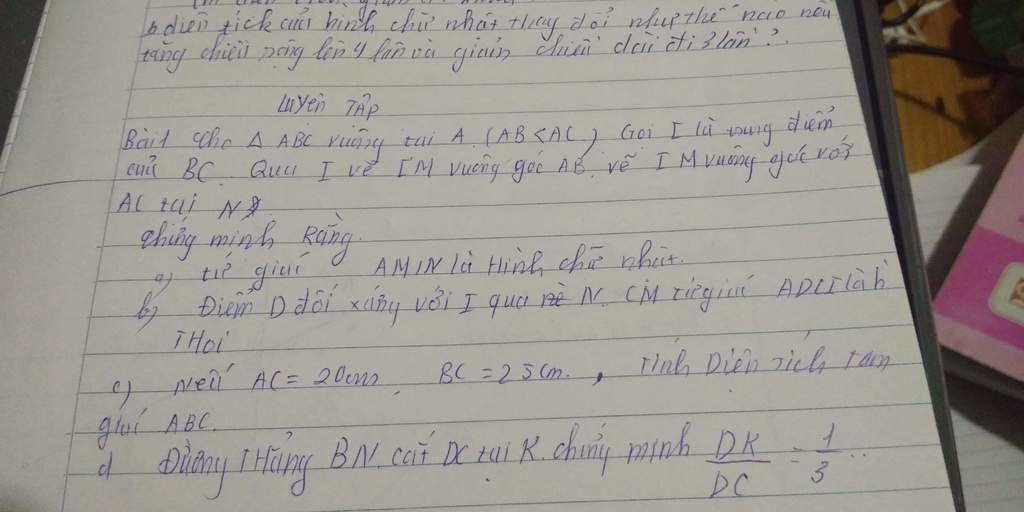 b diên tích của hình chữ nhật thay đổi như thế nào nếu
tăng chiều rộng lên 4 lần và giảm chiều dài đi 3 lần?
LuyÊn TẬP
Bài1 Cho △ ABC vuông tại A. (AB<AC) Gọi I là trung điểm
của BC. Qua I vẽ IM vuông góc AB. vẽ IM vuông góc với
AC tại N
Chứng minh Rằng.
a) tứ giác AMIN là Hình chữ nhật.
b) Điểm D đối xứng với I qua N. CM tứ giác ADCI là h
THoi
c) Nếu AC = 20cm BC = 25cm. , Tính Diện Tích tam
giác ABC.
d Đường THẳng BN. cắt DC tại K. chứng minh DK/DC = 1/3 ..